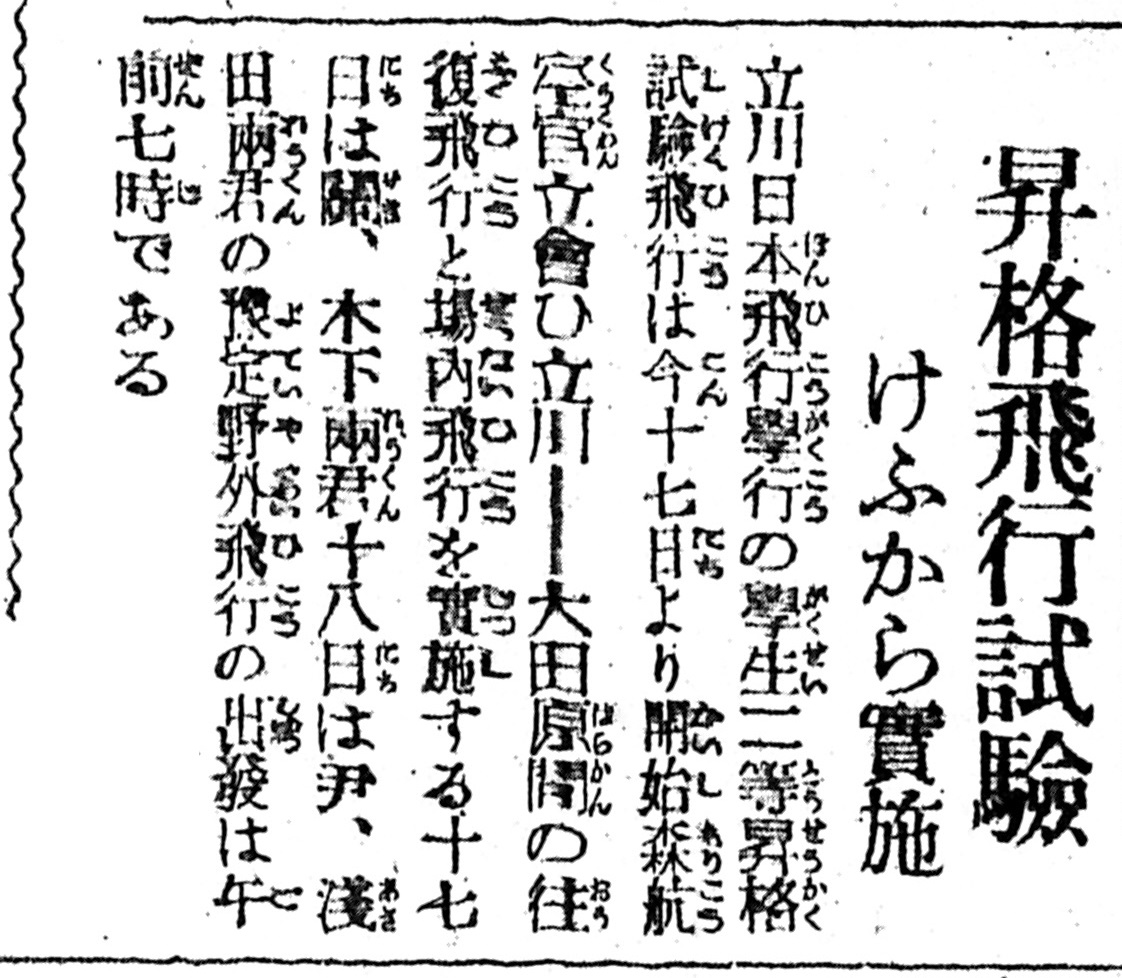 昇格飛行試驗
けふから實施
立川日本飛行學行の學生二等昇格
試驗飛行は今十七日より開始森航
空官立會ひ立川——大田原間の往
復飛行と場内飛行を實施する十七
日は關、木下兩君十八日は尹、淺
田兩君の豫定野外飛行の出發は午
前七時である